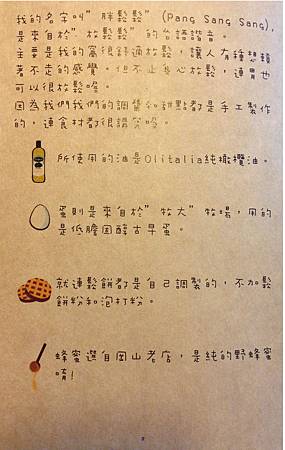 我的名字叫”胖鬆鬆”(Pang Sang Sang),
是來自於”放鬆鬆”的台語諧音。
主要是我的窩很舒適放鬆，讓人有種想賴
著不走的感覺。但不止身心放鬆，連胃也
可以很放鬆唷。
因為我們我們的調醬和甜點都是手工製作
的，連食材都很講究唷。
所使用的油是Olitalia純橄欖油。
蛋則是來自於”牧大”牧場，用的
是低膽固醇古早蛋。
就連鬆餅都是自己調製的，不加鬆
餅粉和泡打粉。
蜂蜜選自岡山老店，是純的野蜂蜜
唷!